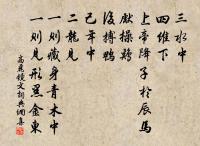 三水中
四維下
上帝降子於辰馬
獻操鷄
後搏鴨
己年中
二龍見
一則藏身青木中
一則見形黑金東
高麗鏡文詞典網